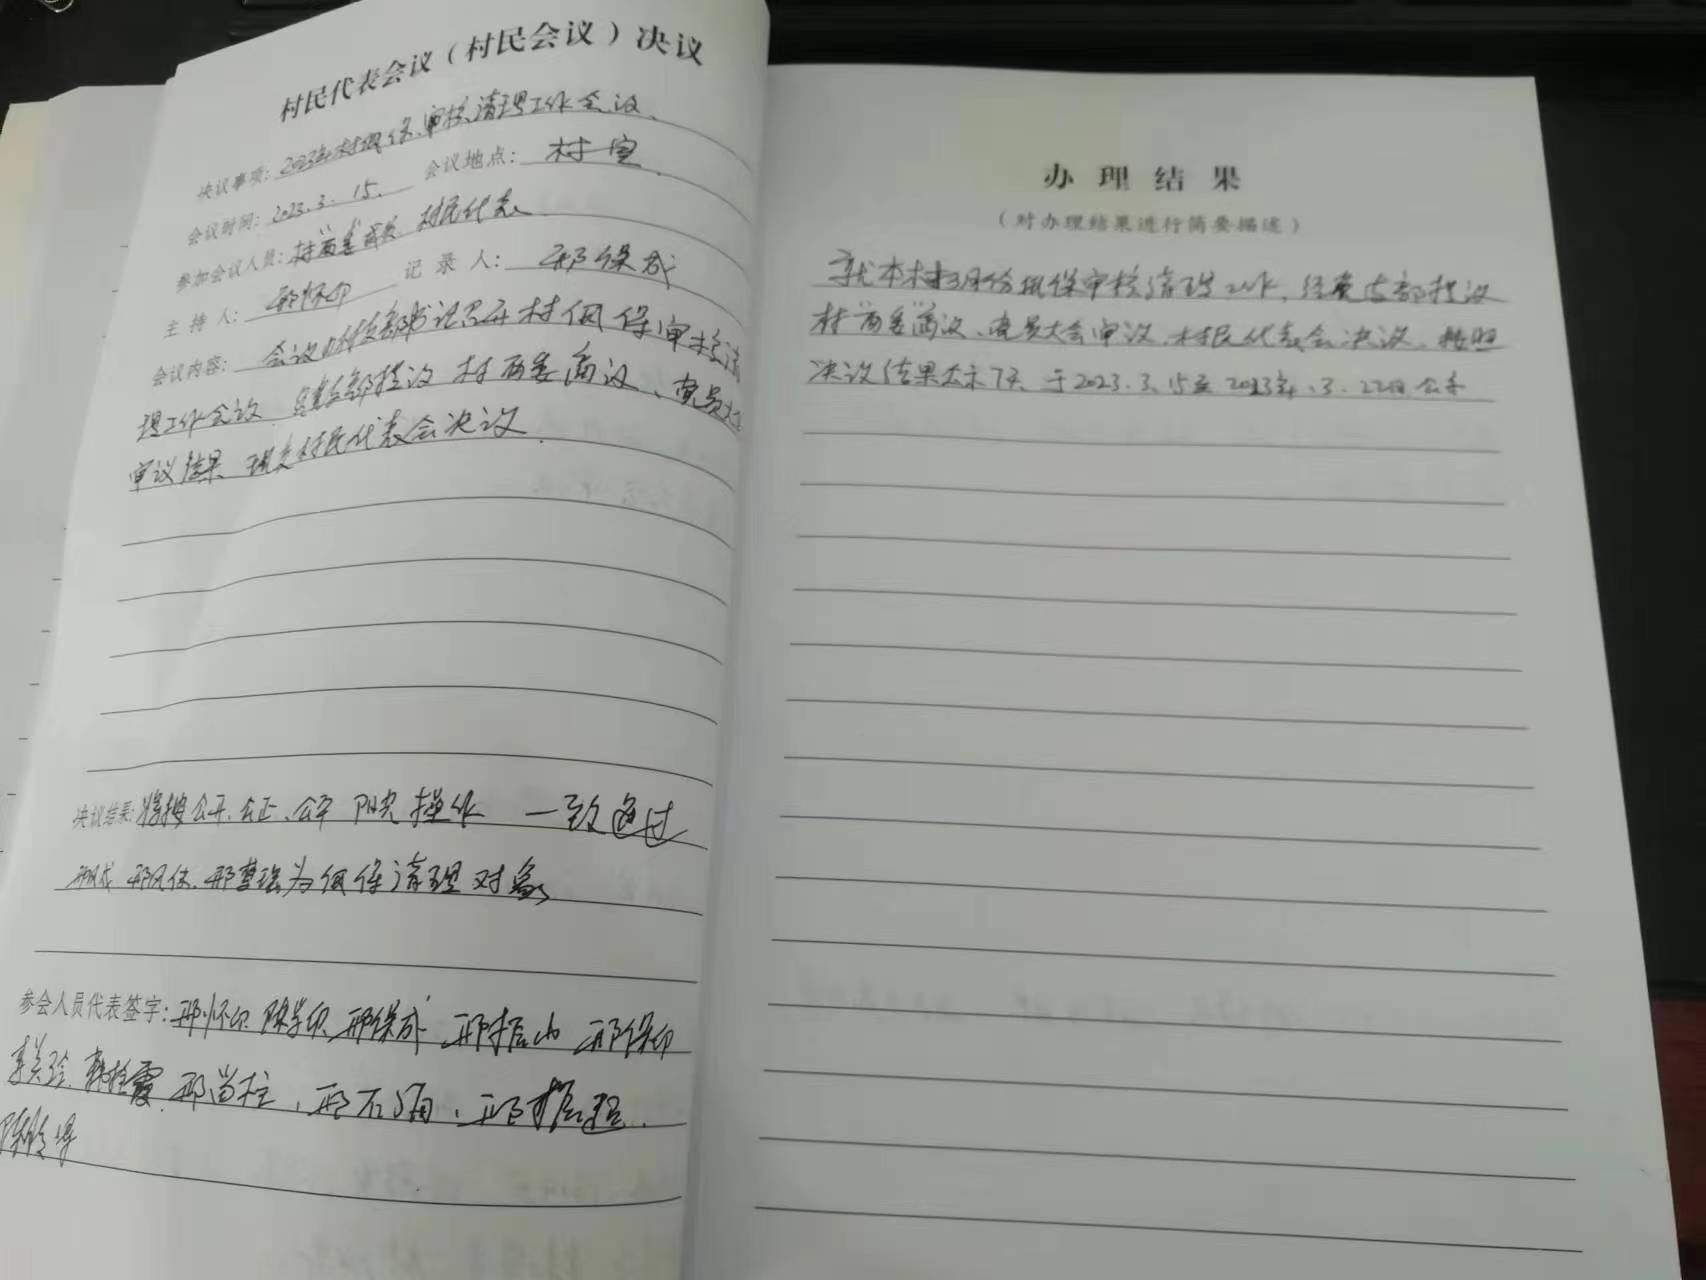 村民代表会议（村民会议）决议
决议事项：2023年村低保审核清理工作会议
会议时间：2023.3.15. 会议地点：村室
参加会议人员：村两委成员 村民代表
主持人：邢怀印 记录人：邢保成
会议内容：会议由村支部书记召开村低保审核清
理工作会议 经支部提议 村两委商议、党员大会
审议结果 现交村民代表会决议.
决议结果：按公开、公正、公平 阳光操作 一致通过
邢凤 为低保清理对象
参会人员代表签字：邢怀印 邢保成 邢振山 邢保印
邢当柱、邢石
办理结果
（对办理结果进行简要描述）
就本村3月份低保审核清理工作，经党支部提议
村两委商议、党员大会审议、村民代表会决议，按照
决议结果公示7天，于2023.3.15至2023年.3.22日公示